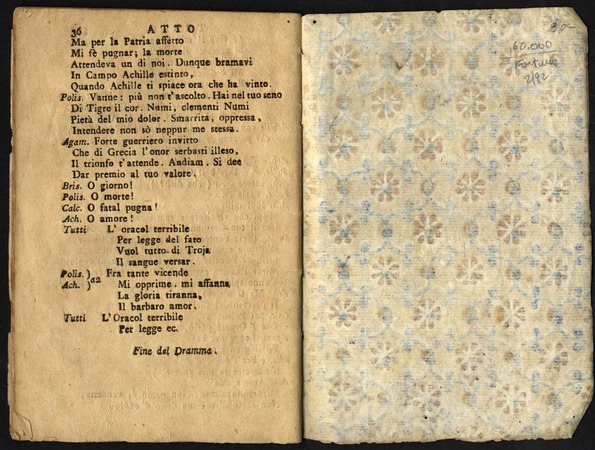 36 ATTO
Ma per la Patria affetto
Mi fè pugnar; la morte
Attendeva un di noi. Dunque bramavi
In Campo Achille estinto,
Quando Achille ti spiace ora che ha vinto.
Polis. Vanne: più non t'ascolto. Hai nel tuo seno
Di Tigre il cor. Numi, clementi Numi
Pietà del mio dolor. Smarrita, oppressa,
Intendere non sò neppur me stessa.
Agam. Forte guerriero invitto
Che di Grecia l'onor serbasti illeso,
Il trionfo t'attende. Andiam. Si dee
Dar premio al tuo valore.
Bris. O giorno!
Polis. O morte!
Calc. O fatal pugna!
Ach. O amore!
Tutti L' oracol terribile
Per legge del fato
Vuol tutto di Troja
Il sangue versar.
Polis. ) a2 Fra tante vicende
Ach. ) Mi opprime, mi affanna
La gloria tiranna,
Il barbaro amor.
Tutti L'Oracol terribile
Per legge ec.
Fine del Dramma.
80-
60.000
2/92